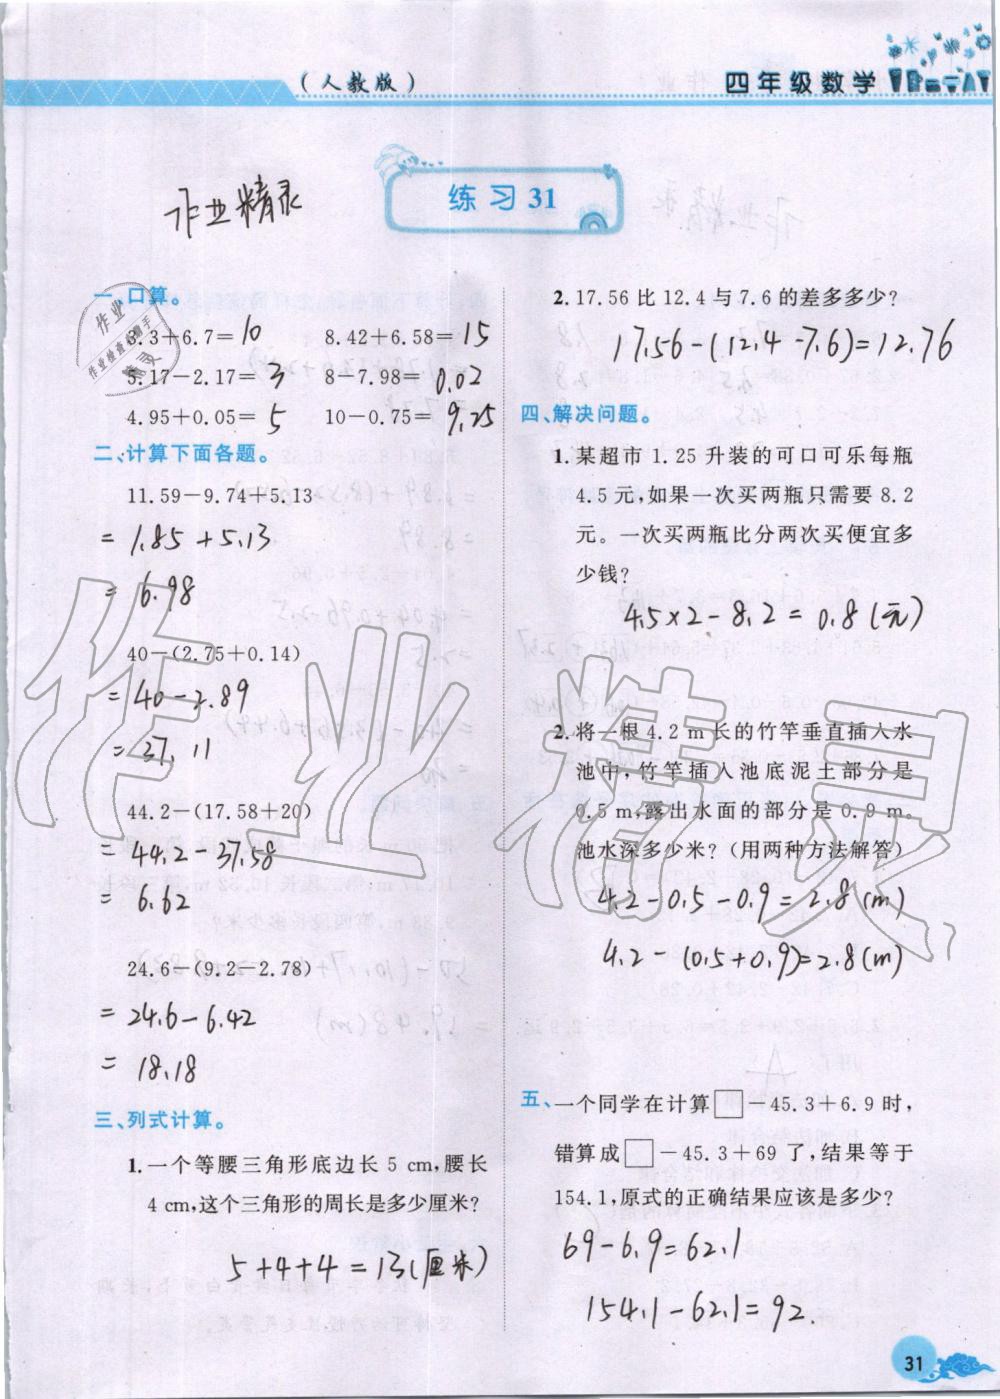 (人教版)
四年级数学
练习31
作业精录
一、口算。
3.3+6.7=10 8.42+6.58=15
5.17-2.17=3 8-7.98=0.02
4.95+0.05=5 10-0.75=9.25
二、计算下面各题。
11.59-9.74+5.13
=1.85+5.13
=6.98
40-(2.75+0.14)
=40-2.89
=37.11
44.2-(17.58+20)
=44.2-37.58
=6.62
24.6-(9.2-2.78)
=24.6-6.42
=18.18
三、列式计算。
1.一个等腰三角形底边长 5 cm,腰长
4 cm,这个三角形的周长是多少厘米?
5+4+4=13(厘米)
2.17.56 比 12.4 与 7.6 的差多多少?
17.56-(12.4-7.6)=12.76
四、解决问题。
1.某超市 1.25 升装的可口可乐每瓶
4.5 元,如果一次买两瓶只需要 8.2
元。一次买两瓶比分两次买便宜多
少钱?
4.5×2-8.2=0.8(元)
2.将一根 4.2 m 长的竹竿垂直插入水
池中,竹竿插入池底泥土部分是
0.5 m,露出水面的部分是 0.9 m。
池水深多少米?(用两种方法解答)
4.2-0.5-0.9=2.8(m)
4.2-(0.5+0.9)=2.8(m)
五、一个同学在计算□-45.3+6.9 时,
错算成□-45.3+69 了,结果等于
154.1,原式的正确结果应该是多少?
69-6.9=62.1
154.1-62.1=92.
31
作业精灵